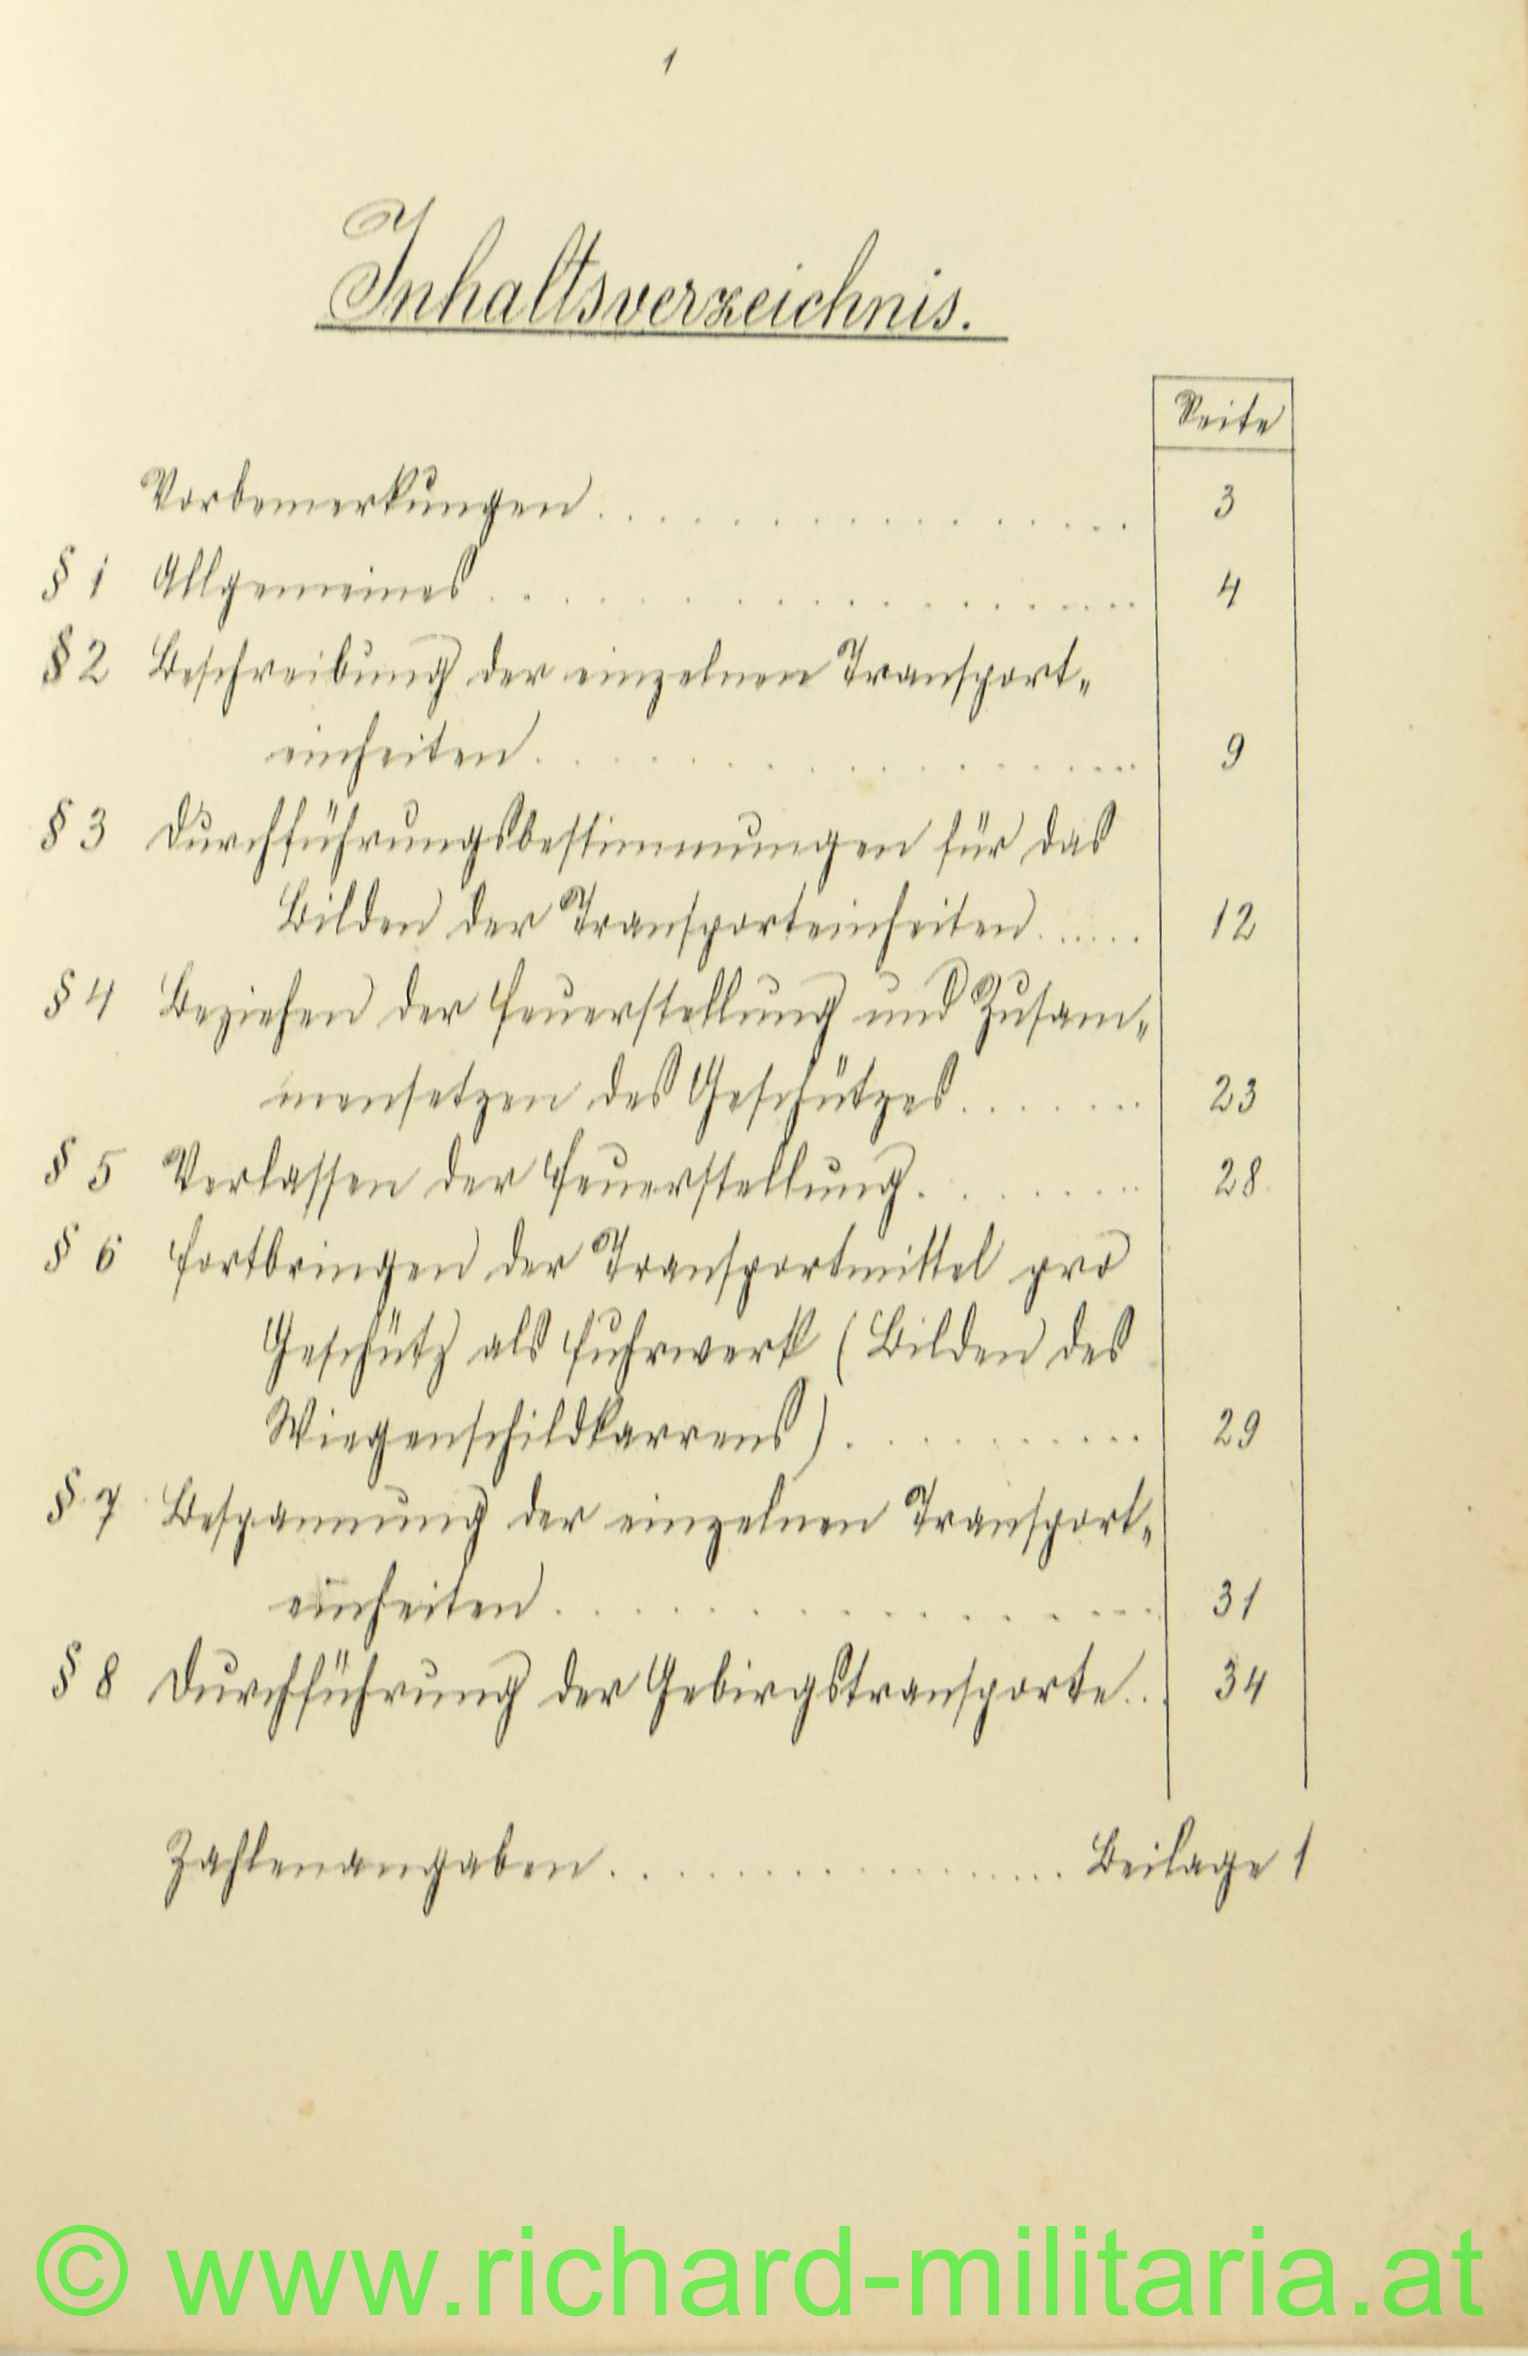 1
Inhaltsverzeichnis.
Seite
Vorbemerkungen . . . . . . . . . . . . . . . . . 3
§ 1 Allgemeines . . . . . . . . . . . . . . . . . . . 4
§ 2 Beschreibung der einzelnen Transport-
einheiten . . . . . . . . . . . . . . . . . . 9
§ 3 Durchführungsbestimmungen für das
Bilden der Transporteinheiten . . . . . . 12
§ 4 Beziehen der Feuerstellung und Zusam-
mensetzen des Geschützes . . . . . . . 23
§ 5 Verlassen der Feuerstellung . . . . . . . . 28
§ 6 Fortbringen der Transportmittel pro
Geschütz als Fuhrwerk (Bilden des
Wiegenschildkarrens) . . . . . . . . . . 29
§ 7 Bespannung der einzelnen Transport-
einheiten . . . . . . . . . . . . . . . . . 31
§ 8 Durchführung der Gebirgstransporte . . . 34
Zahlenangaben . . . . . . . . . . . . . . . Beilage 1
© www.richard-militaria.at